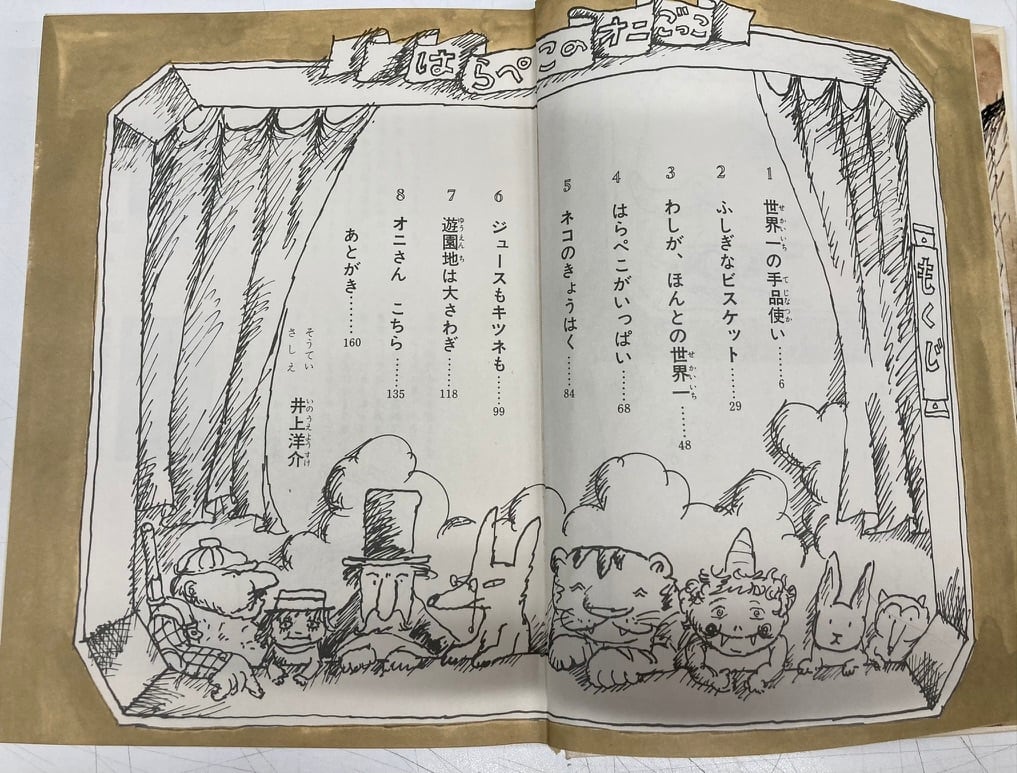 はらぺこのオニごっこ
もくじ
1 世界一の手品使い……6
せかいいち てじなつか
2 ふしぎなビスケット……29
3 わしが、ほんとの世界一……48
せかいいち
4 はらぺこがいっぱい……68
5 ネコのきょうはく……84
6 ジュースもキツネも……99
7 遊園地は大さわぎ……118
ゆうえんち
8 オニさん こちら……135
あとがき……160
そうてい
さしえ
井上洋介
いのうえようすけ